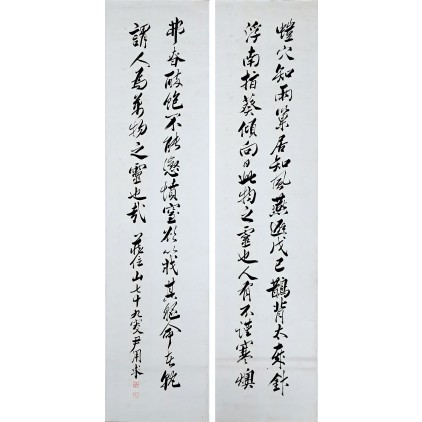 穴知雨巢居知風燕避戊己鵲背太歲針
浮南指葵傾向日此物之靈也人有不謹寒燠
弗醉飽不能懲忿窒欲以戕其命者孰
謂人為萬物之靈也哉 山七十九叟尹用求